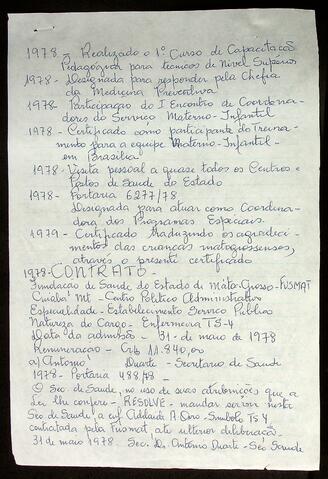 1978 - Realizado o 1º Curso de Capacitação
Pedagógica para técnicos de Nível Superior
1978 - Designada para responder pela Chefia
da Medicina Preventiva
1978 - Participação do I Encontro de Coordena-
dores do Serviço Materno-Infantil
1978 - Certificado como participante do Treina-
mento para a equipe Materno-Infantil-
em Brasília
1978 - Visita pessoal a quase todos os Centros e
Postos de Saude do Estado
1978 - Portaria 6277/78
Designada para atuar como Coordena-
dora dos Programas Especiais.
1979 - Certificado traduzindo os agradeci-
mentos das crianças matogrossenses,
através o presente certificado
1978 - CONTRATO -
Fundacao de Saude do Estado de Mato-Grosso - FUSMAT
Cuiabá Mt - Centro Politico Administrativo
Especialidade - Estabelecimento Servico Público
Natureza do Cargo - Enfermeira TS-4
Data da admissão - 31 - de maio de 1978
Remuneracao - Crb 11.840,00
a) Antonio Duarte - Secretario de Saude
1978 - Portaria 488/78
O Sec. de Saude, no uso de suas atribuições que a
Lei lhe confere - RESOLVE - mandar servir nesta
Sec de Saude, a enf. Adelaide A. - Simbolo TS 4
contratada pela Fusmat até ulterior deliberação.
31 de maio 1978. Sec. Dr. Antonio Duarte - Sec Saude